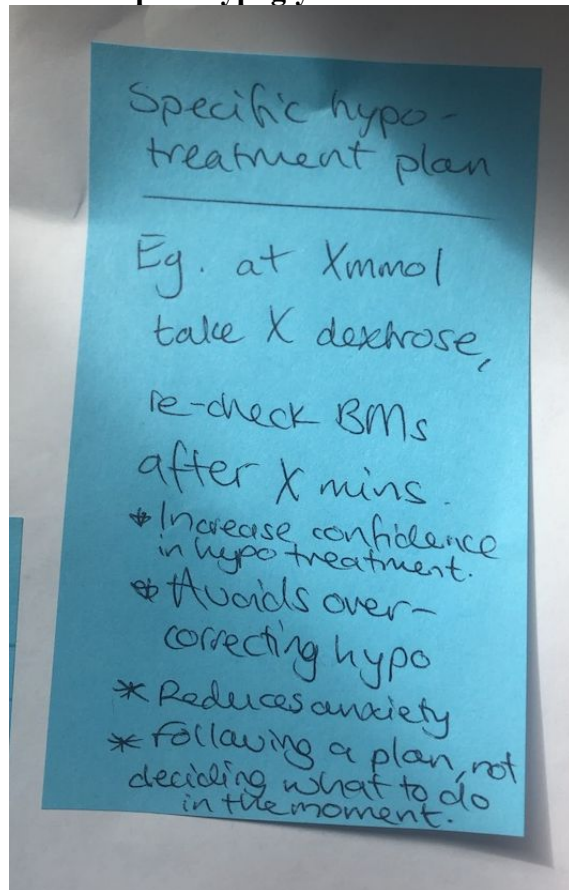 Specific hypo-
treatment plan
Eg. at Xmmol
take X dextrose,
re-check BMs
after X mins.
* Increase confidence
in hypo treatment.
* Avoids over-
correcting hypo
* Reduces anxiety
* Following a plan, not
deciding what to do
in the moment.